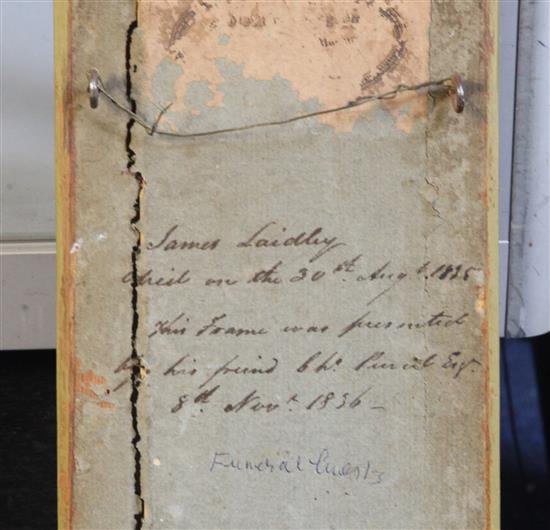 James Laidley
died on the 30th Augt. 1835
This Frame was presented
by his friend Chs. Purcel Esqr.
8th Novr. 1836 –
Funeral Guests